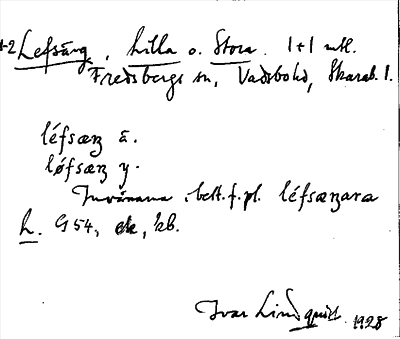 1-2 Lefsäng, Lilla o. Stora. 1+1 mtl.
Fredsbergs sn, Vadsbo hd, Skarab. l.
léfsæŋ ä.
løfsæŋ y.
Invånarna i best. f. pl. léfsæŋara
h. G 54, ek, kb.
Ivar Lindquist 1928